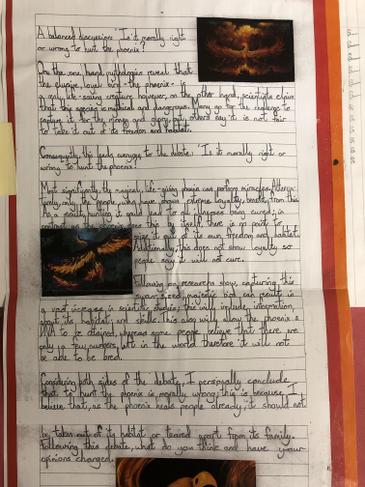 A balanced discussion: "Is it morally right
or wrong to hunt the phoenix?"
On the one hand, mythologies reveal that
the elusive, loyal bird - the phoenix - is
a life-saving creature; however, on the other hand, scientists claim
that the species is mythical and dangerous. Many go for the challenge to
capture it for the money and glory but others say it is not fair
to take it out of its freedom and habitat.
Consequently, this leads everyone to the debate: "Is it morally right or
wrong to hunt the phoenix?"
Most significantly, the magical, life-giving phoenix can perform miracles. Alterna-
tively, only the people who have shown extreme loyalty, benefit from this.
As a result, hunting it could lead to all illnesses being cured; in
contrast as the phoenix does this by itself, there is no point to
take it out of its own freedom and habitat.
Additionally, this does not show loyalty so
people say it will not cure.
Following on, researchers show, capturing this
majestic bird can result in
a vast increase in scientific studies; this will include information
about its habitat and skills. This also will allow the phoenix's
to be obtained, whereas some people believe that there are
only a few numbers left in the world therefore it will not
be able to be bred.
Considering both sides of the debate, I personally conclude
that to hunt the phoenix is morally wrong; this is because, I
believe that, as the phoenix heals people already, it should not
be taken out of its habitat or teared apart from its family.
Following this debate, what do you think and have your
opinions changed.